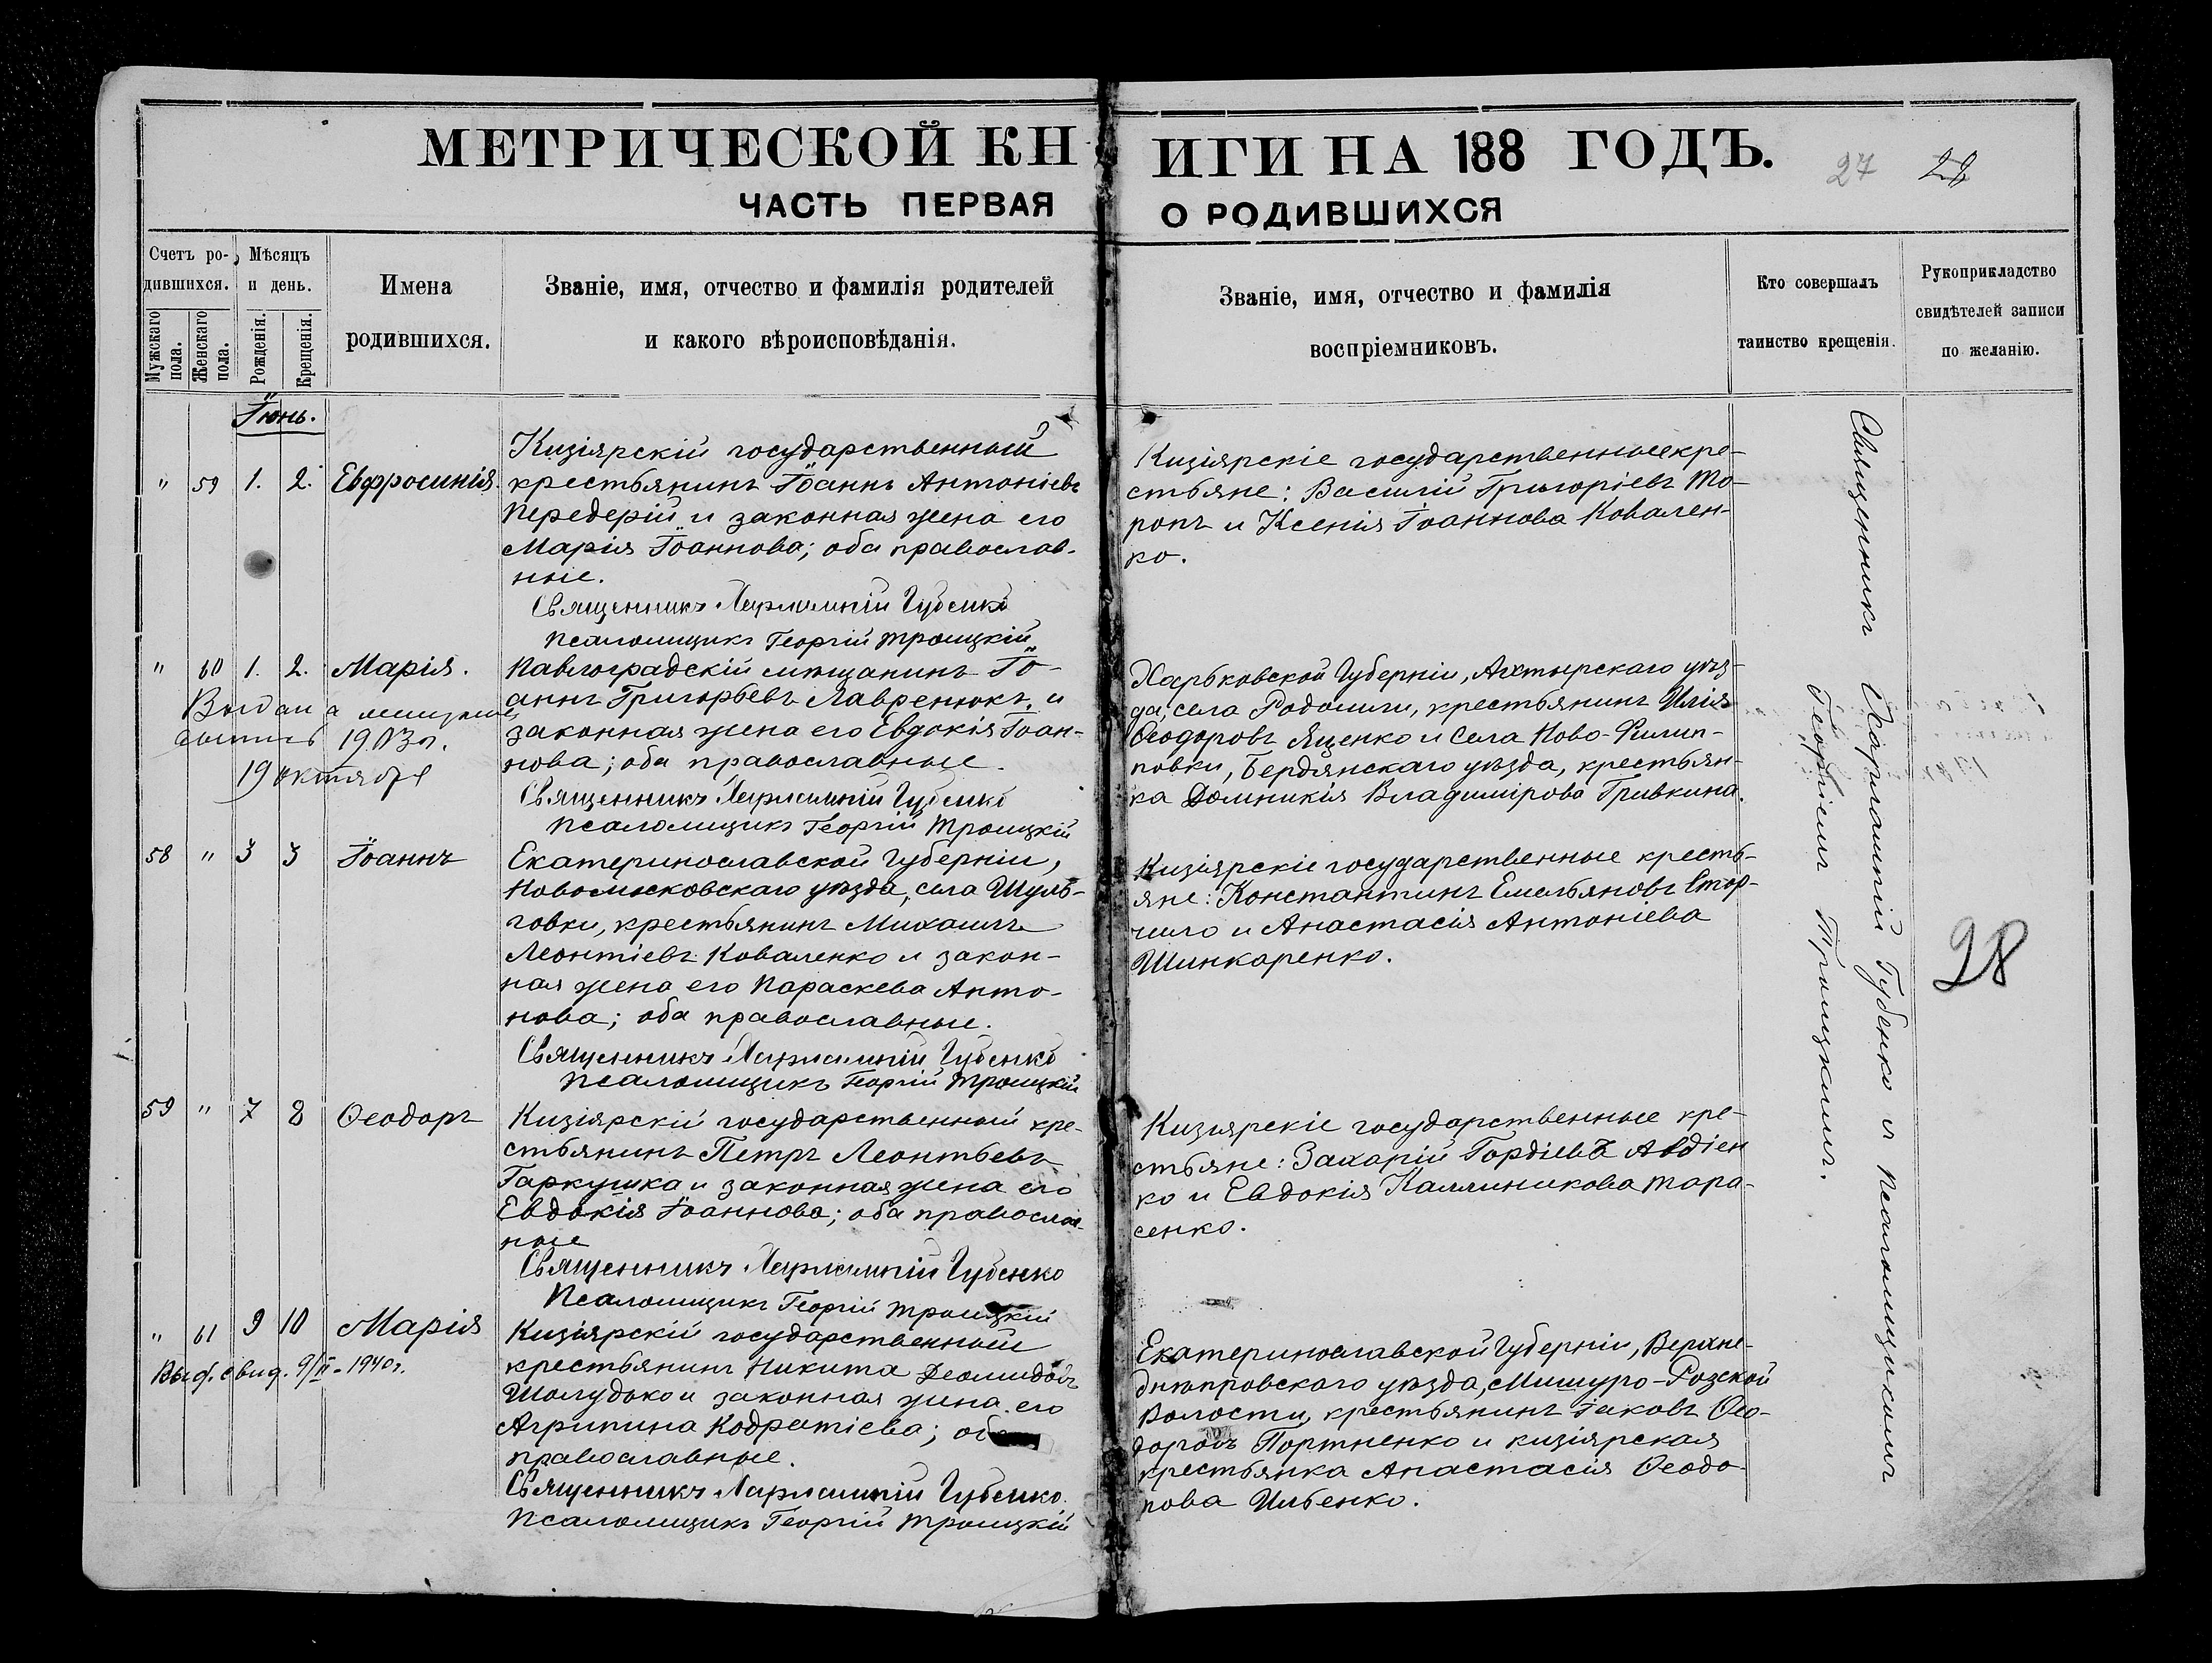 МЕТРИЧЕСКОЙ КНИГИ НА 188 ГОДЪ.
27 28
ЧАСТЬ ПЕРВАЯ О РОДИВШИХСЯ
Счетъ родившихся.
Мужскаго пола.
Женскаго пола.
Мѣсяцъ и день.
Рожденія.
Крещенія.
Имена
родившихся.
Званіе, имя, отчество и фамилія родителей
и какого вѣроисповѣданія.
Званіе, имя, отчество и фамилія
воспріемниковъ.
Кто совершалъ
таинство крещенія.
Рукоприкладство
свидѣтелей записи
по желанію.
Іюнь.
" 59 1. 2. Евфросинія.
Кизіярскій государственный
крестьянинъ Іоаннъ Антоніевъ
Передерій и законная жена его
Марія Іоаннова; оба православ-
ные.
Священникъ Харлампій Губенко
Псаломщикъ Георгій Троицкій
Кизіярскіе государственные кре-
стьяне: Василій Григоріевъ То-
ропъ и Ксенія Іоаннова Ковален-
ко.
" 60 1. 2. Марія.
Выдана
1903 г.
19 октября
Павлоградскій мѣщанинъ Іо-
аннъ Григорьевъ Лавренюкъ, и
законная жена его Евдокія Іоан-
нова; оба православные.
Священникъ Харлампій Губенко
Псаломщикъ Георгій Троицкій
Харьковской Губерніи, Ахтырскаго уѣз-
да, села Родомли, крестьянинъ Илія
Ѳеодоровъ Яценко и села Ново-Филип-
повки, Бердянскаго уѣзда, крестьян-
ка Домникія Владимірова Гривкина.
58 " 3 3 Іоаннъ
Екатеринославской Губерніи,
Новомосковскаго уѣзда, села Шуль-
говки, крестьянинъ Михаилъ
Леонтіевъ Коваленко и закон-
ная жена его Параскева Анто-
нова; оба православные.
Священникъ Харлампій Губенко
Псаломщикъ Георгій Троицкій
Кизіярскіе государственные кресть-
яне: Константинъ Емельяновъ Стор-
чило и Анастасія Антоніева
Шинкаренко.
59 " 7 8 Ѳеодоръ
Кизіярскій государственный кре-
стьянинъ Петръ Леонтьевъ
Гаркушка и законная жена его
Евдокія Іоаннова; оба православ-
ные
Священникъ Харлампій Губенко
Псаломщикъ Георгій Троицкій
Кизіярскіе государственные кре-
стьяне: Захарій Гордіевъ Авдіен
ко и Евдокія Каллиникова Тара-
сенко.
" 61 9 10 Марія
Выд. свид. 9/II-1940 г.
Кизіярскій государственный
крестьянинъ Никита Деомидовъ
Шолудько и законная жена его
Агрипина Кодратіева; оба
православные.
Священникъ Харлампій Губенко
Псаломщикъ Георгій Троицкій
Екатеринославской Губерніи, Верхне-
днѣпровскаго уѣзда, Мишуро-Рогской
Волости, крестьянинъ Іаковъ Ѳео-
доровъ Портненко и кизіярская
крестьянка Анастасія Ѳеодо-
рова Ильенко.
Священникъ Харлампій Губенко и псаломщикомъ
Георгіемъ Троицкимъ.
28